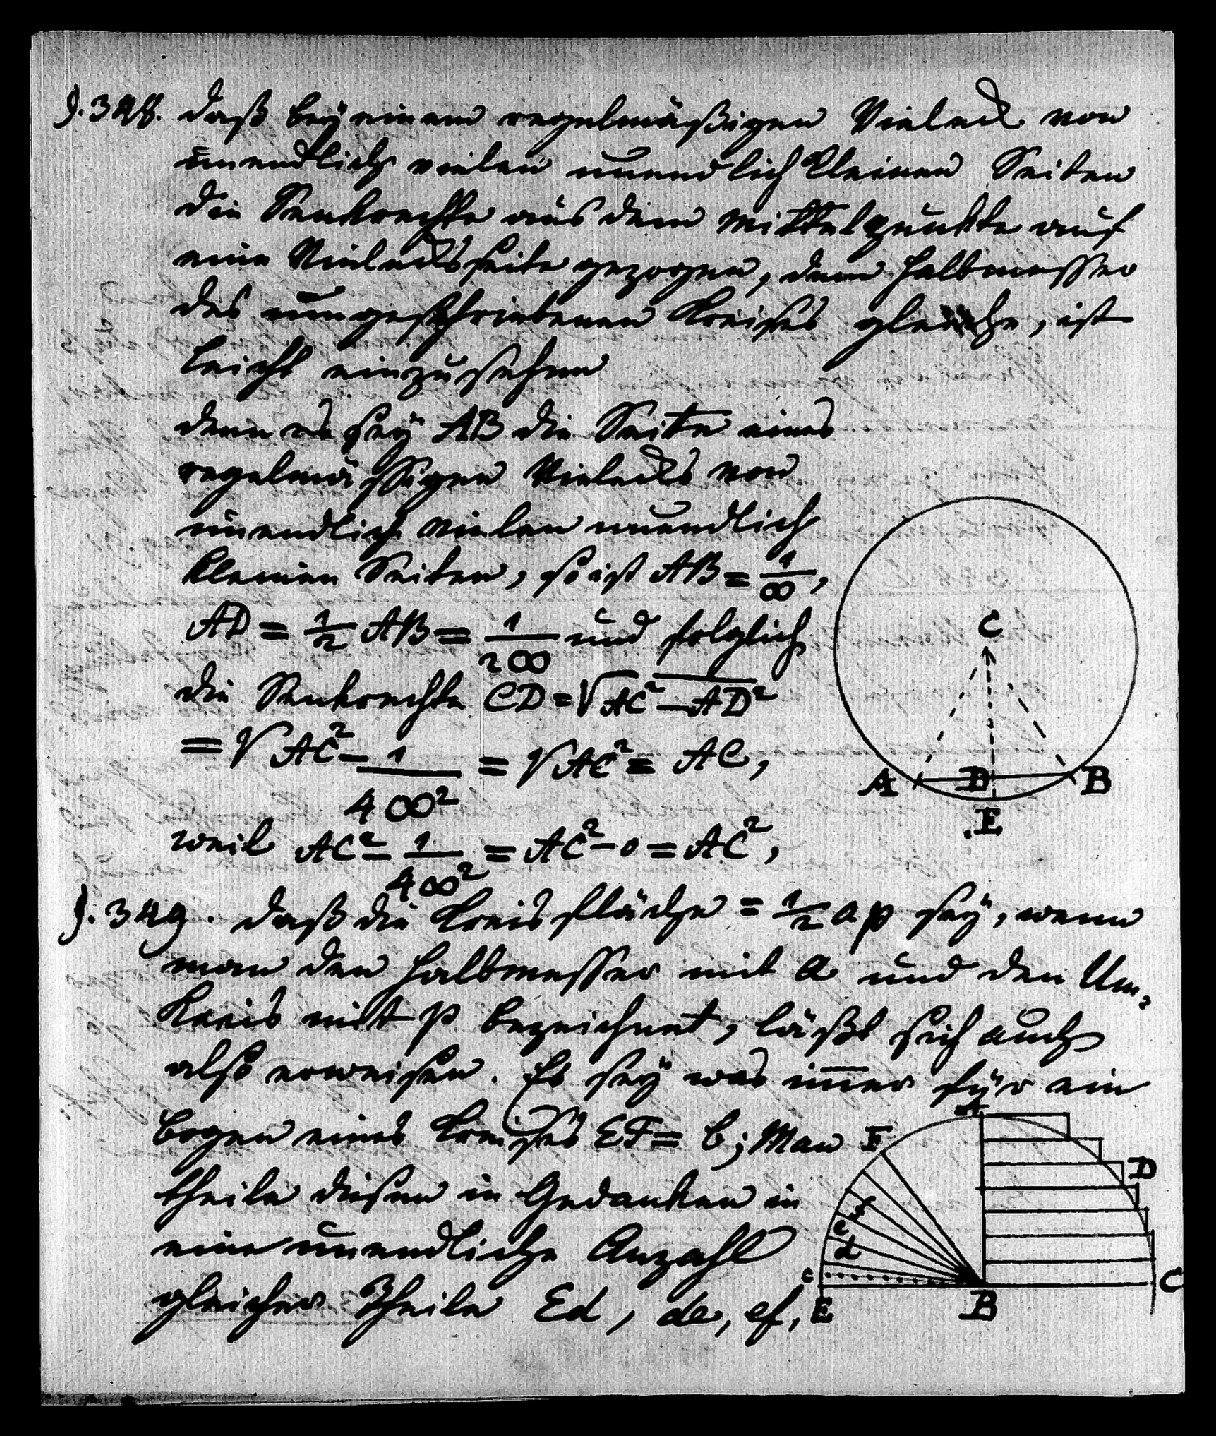 §. 348. daß bey einem regelmäßigen Vieleck von
unendlich vielen unendlich kleinen Seiten
die Senkrechte aus dem Mittelpunkte auf
eine Vielecksseite gezogen, dem Halbmesser
des umgeschriebenen Kreises gleiche, ist
leicht einzusehen
denn es sey AB die Seite eines
regelmässigen Vielecks von
unendlich vielen unendlich
kleinen Seiten, so ist AB = 1/∞,
AD = 1/2 AB = 1/2∞ und folglich
die Senkrechte CD = √AC² − AD²
= √AC² − 1/4∞² = √AC² = AC,
weil AC² − 1/4∞² = AC² − 0 = AC²,
C
A D B
E
§. 349. daß die Kreisfläche = 1/2 ap sey, wenn
man den Halbmesser mit a und den Um-
kreis mit p bezeichnet, läßt sich auch
also erweisen. Es sey was im̅er für ein
bogen eines Kreises EF = b; Man
theile diesen in Gedanken in
eine unendliche Anzahl
gleicher Theile Ed, de, ef,
A
F
D
f
e
d
c
E B C